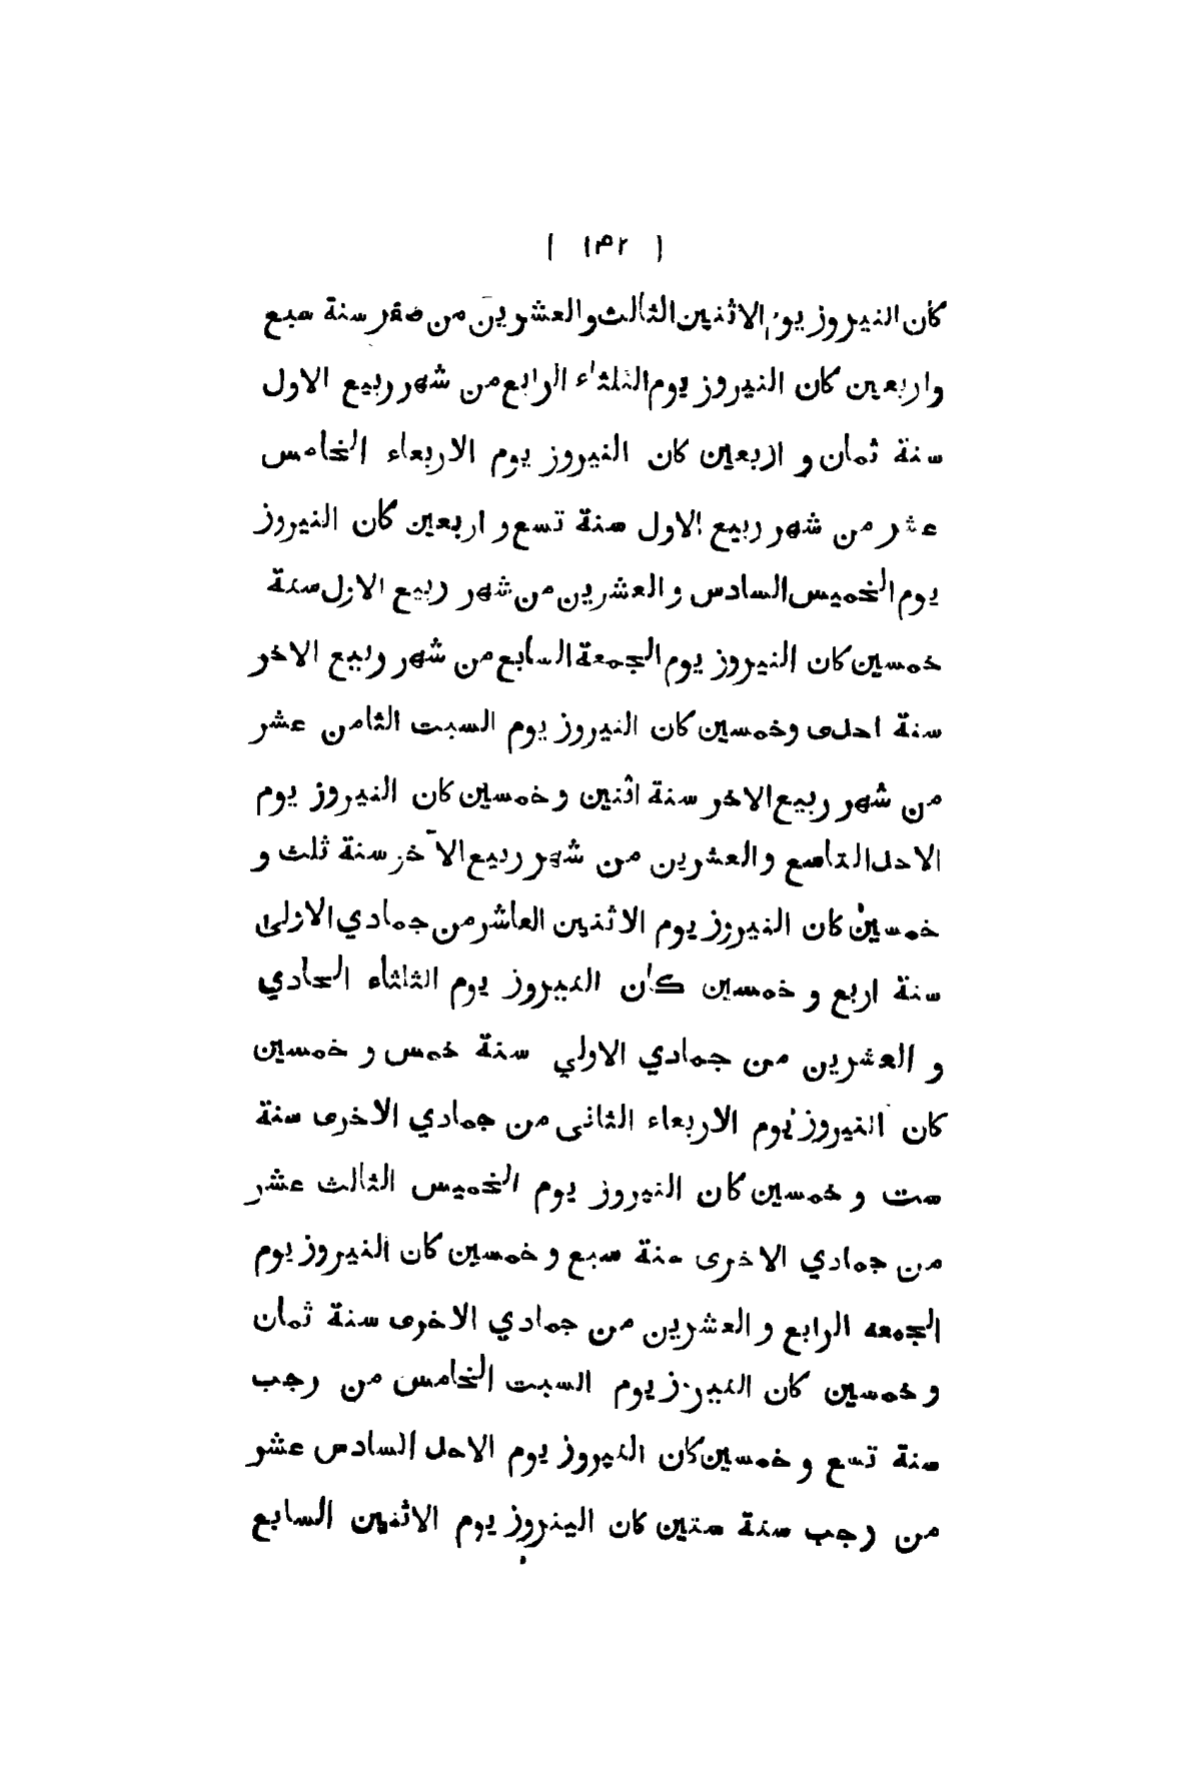 ( ۱۴۲ )
كان النيروز يوم الاثنين الثالث والعشرين من صفر سنة سبع
واربعين كان النيروز يوم الثلثاء الرابع من شهر ربيع الاول
سنة ثمان و اربعين كان النيروز يوم الاربعاء الخامس
عشر من شهر ربيع الاول سنة تسع و اربعين كان النيروز
يوم الخميس السادس والعشرين من شهر ربيع الاول سنة
خمسين كان النيروز يوم الجمعة السابع من شهر ربيع الاخر
سنة احدى وخمسين كان النيروز يوم السبت الثامن عشر
من شهر ربيع الاخر سنة اثنين و خمسين كان النيروز يوم
الاحد التاسع والعشرين من شهر ربيع الآخر سنة ثلث و
خمسين كان النيروز يوم الاثنين العاشر من جمادي الاولى
سنة اربع و خمسين كان النيروز يوم الثلثاء الحادي
و العشرين من جمادي الاولي سنة خمس و خمسين
كان النيروز يوم الاربعاء الثانى من جمادي الاخرى سنة
ست و خمسين كان النيروز يوم الخميس الثالث عشر
من جمادي الاخرى سنة سبع و خمسين كان النيروز يوم
الجمعه الرابع والعشرين من جمادي الاخرى سنة ثمان
و خمسين كان النيروز يوم السبت الخامس من رجب
سنة تسع و خمسين كان النيروز يوم الاحد السادس عشر
من رجب سنة ستين كان الينروز يوم الاثنين السابع